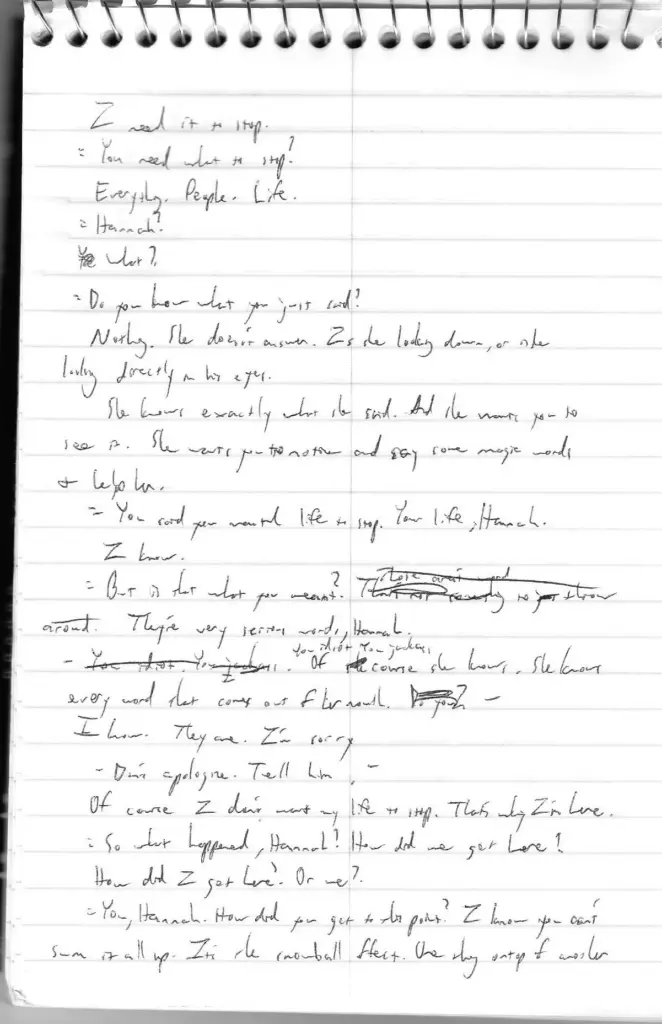 I need it to stop.
= You need what to stop?
Everything. People. Life.
= Hannah?
What?
= Do you know what you just said?
Nothing. She doesn't answer. Is she looking down, or is she
looking directly in his eyes.
She knows exactly what she said. And she wants you to
see it. She wants you to notice and say some magic words
+ help her.
= You said you wanted life to stop. Your life, Hannah.
I know.
= But is that what you meant? These aren't words to throw
around. They're very serious words, Hannah.
- You idiot. You jackass. Of course she knows. She knows
every word that comes out of her mouth. Do you? -
I know. They are. I'm sorry
- Don't apologize. Tell him. -
Of course I don't want my life to stop. That's why I'm here.
= So what happened, Hannah? How did we get here?
How did I get here? Or we?
= You, Hannah. How did you get to this point? I know you can't
sum it all up. It's the snowball effect. One thing on top of another